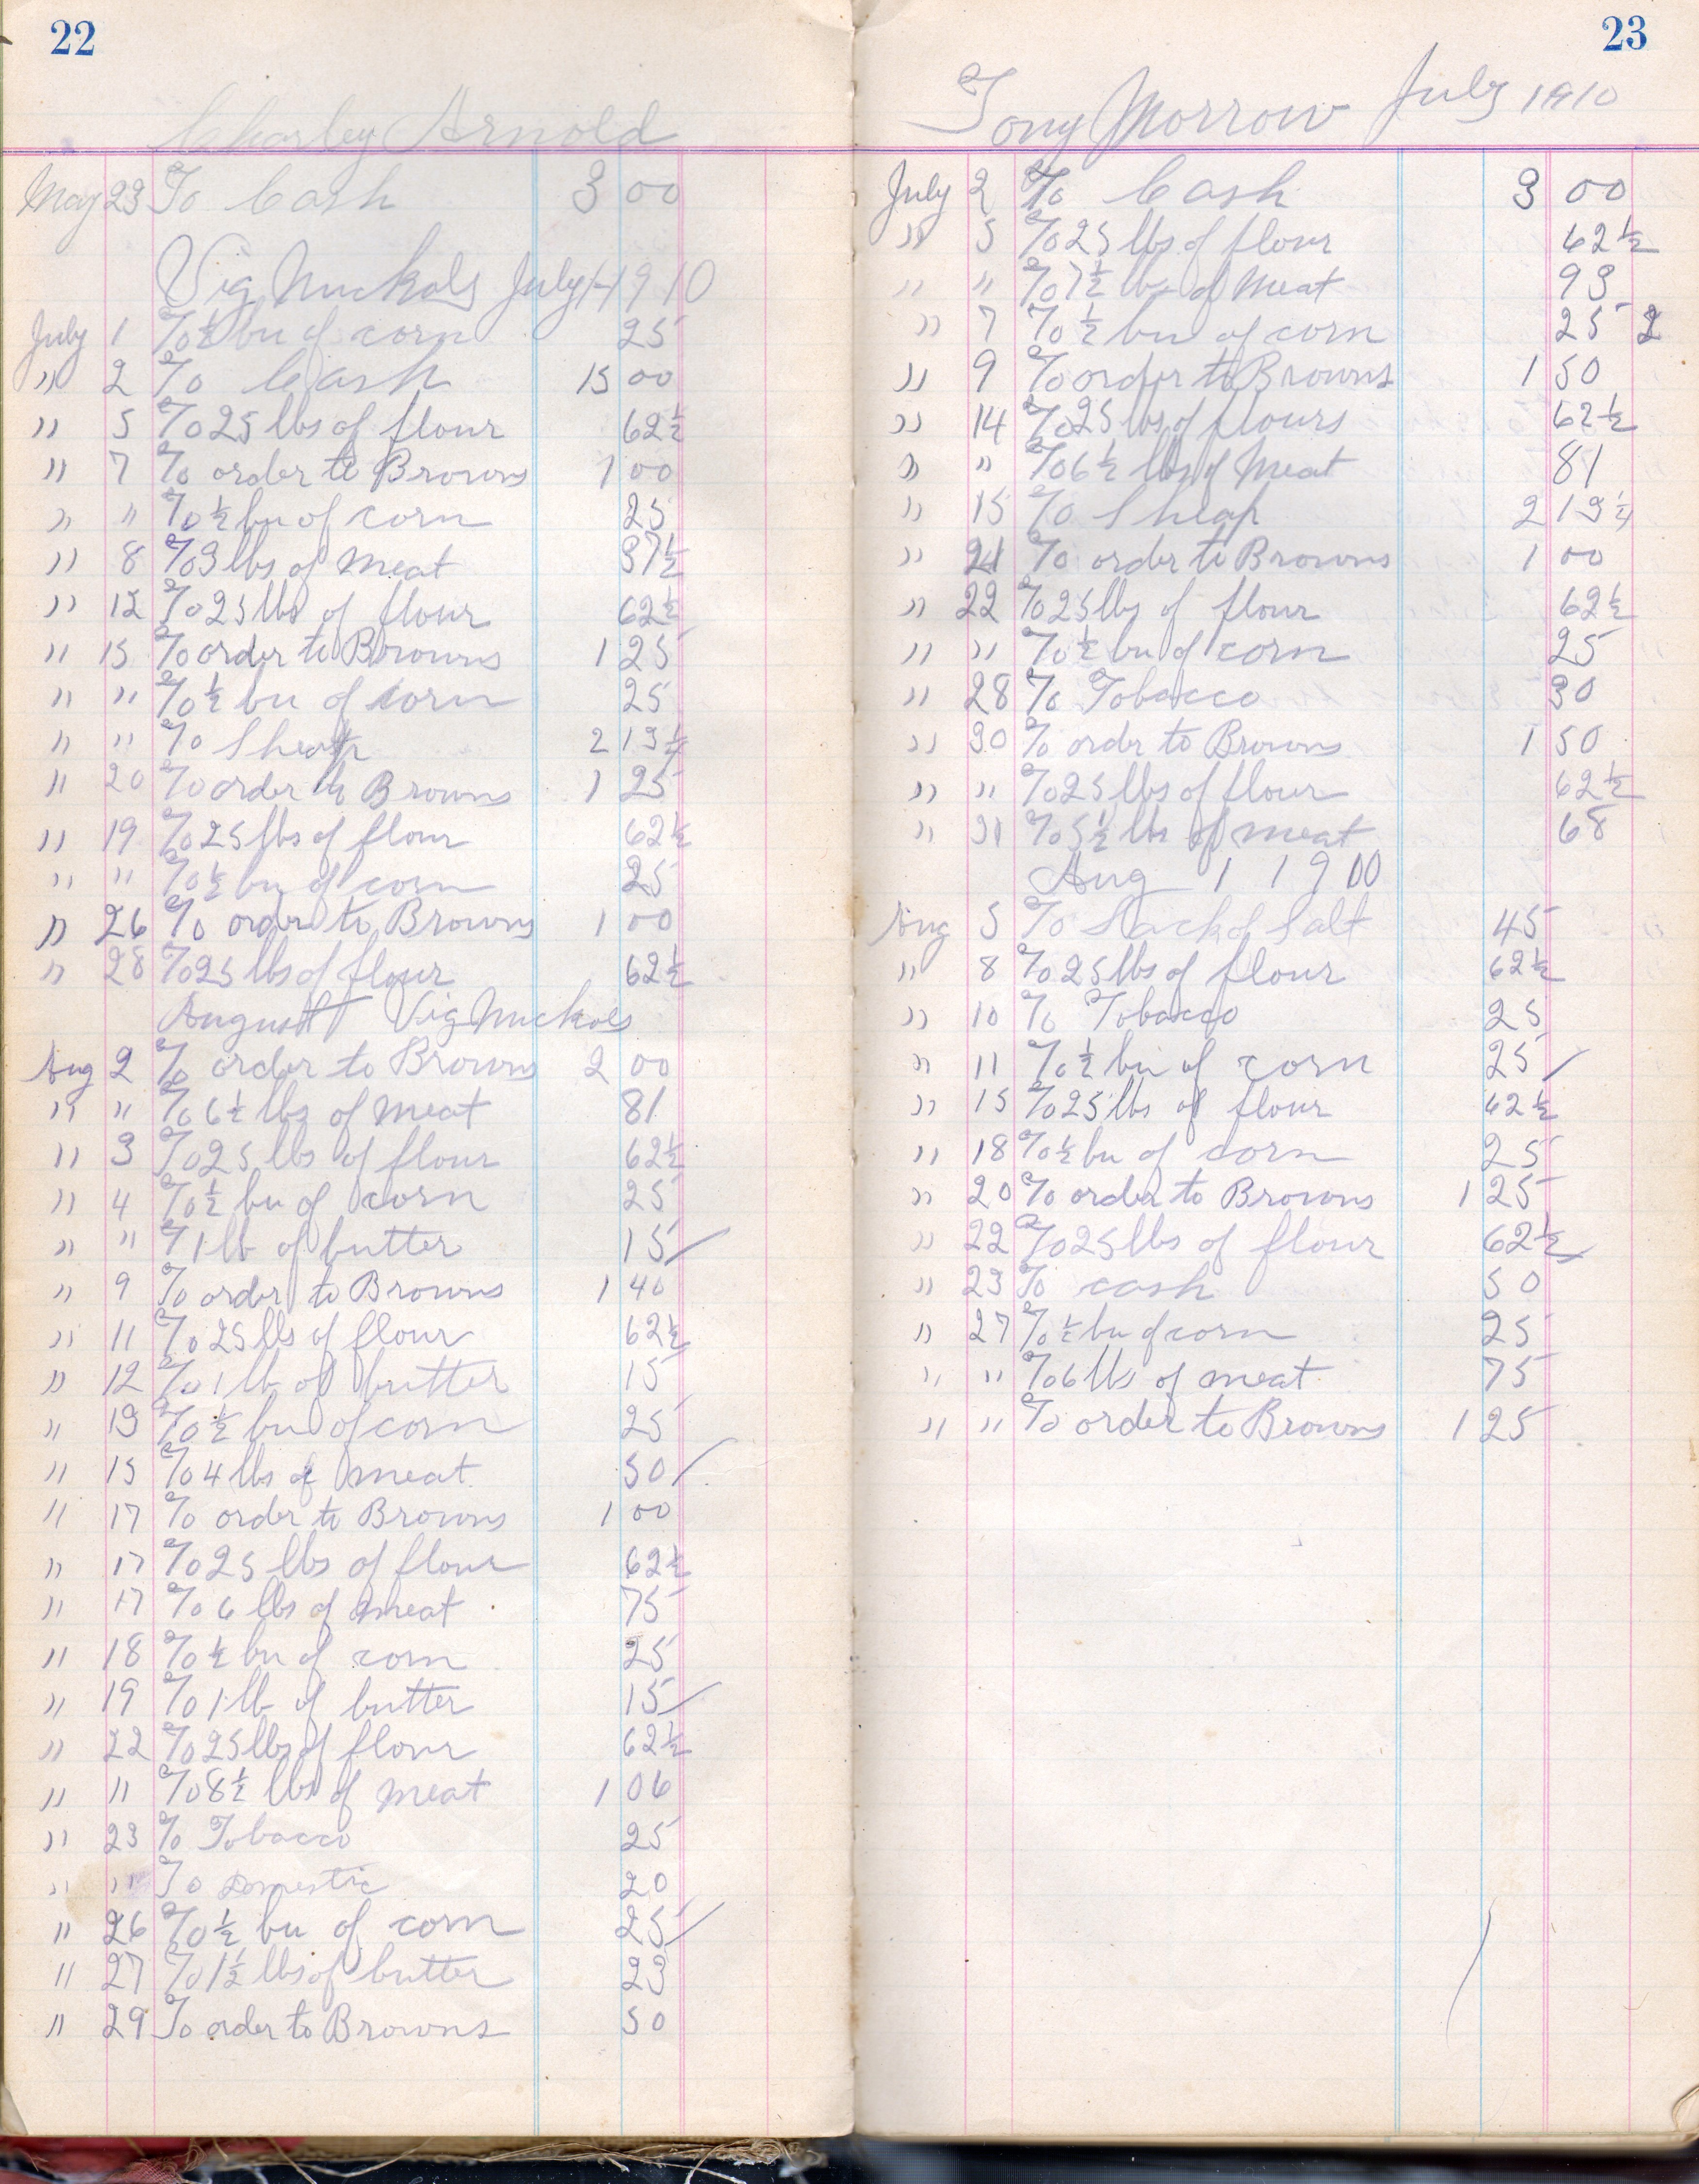 22
Charley Arnold
May 23 To Cash 3 00
Vig Nuckols July 1 1910
July 1 To ½ bu of corn 25
" 2 To Cash 15 00
" 5 To 25 lbs of flour 62½
" 7 To order to Browns 1 00
" " To ½ bu of corn 25
" 8 To 3 lbs of Meat 37½
" 12 To 25 lbs of flour 62½
" 15 To order to Browns 1 25
" " To ½ bu of corn 25
" " To Sheap 2 13¼
" 20 To order to Browns 1 25
" 19 To 25 lbs of flour 62½
" " To ½ bu of corn 25
" 26 To order to Browns 1 00
" 28 To 25 lbs of flour 62½
August Vig Nuckols
Aug 2 To order to Browns 2 00
" " To 6½ lbs of Meat 81
" 3 To 25 lbs of flour 62½
" 4 To ½ bu of corn 25
" " To 1 lb of butter 15
" 9 To order to Browns 1 40
" 11 To 25 lbs of flour 62½
" 12 To 1 lb of butter 15
" 13 To ½ bu of corn 25
" 15 To 4 lbs of meat 50
" 17 To order to Browns 1 00
" 17 To 25 lbs of flour 62½
" 17 To 6 lbs of meat 75
" 18 To ½ bu of corn 25
" 19 To 1 lb of butter 15
" 22 To 25 lbs of flour 62½
" " To 8½ lbs of meat 1 06
" 23 To Tobacco 25
" " To Domestic 20
" 26 To ½ bu of corn 25
" 27 To 1½ lbs of butter 23
" 29 To order to Browns 50
23
Tony Morrow July 1910
July 2 To Cash 3 00
" 5 To 25 lbs of flour 62½
" " To 7½ lbs of Meat 93
" 7 To ½ bu of corn 25 2
" 9 To order to Browns 1 50
" 14 To 25 lbs of flours 62½
" " To 6½ lbs of Meat 81
" 15 To Sheap 2 13¼
" 21 To order to Browns 1 00
" 22 To 25 lbs of flour 62½
" " To ½ bu of corn 25
" 28 To Tobacco 30
" 30 To order to Browns 1 50
" " To 25 lbs of flour 62½
" 31 To 5½ lbs of meat 68
Aug 1 1910
Aug 5 To Sack of Salt 45
" 8 To 25 lbs of flour 62½
" 10 To Tobacco 25
" 11 To ½ bu of corn 25
" 15 To 25 lbs of flour 62½
" 18 To ½ bu of corn 25
" 20 To order to Browns 1 25
" 22 To 25 lbs of flour 62½
" 23 To cash 50
" 27 To ½ bu of corn 25
" " To 6 lbs of meat 75
" " To order to Browns 1 25